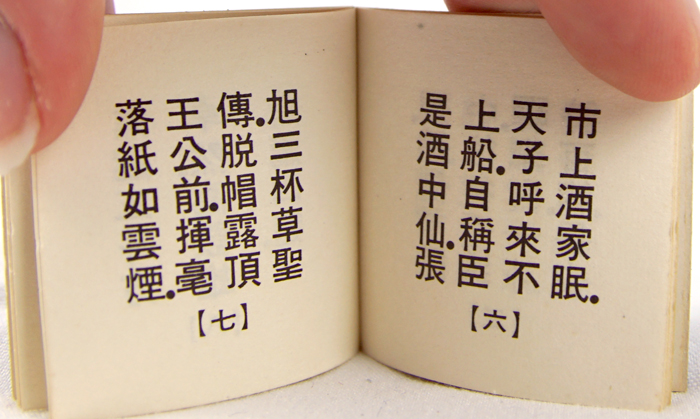 市上酒家眠.
天子呼來不
上船.自稱臣
是酒中仙.張
【六】
旭三杯草聖
傳.脫帽露頂
王公前.揮毫
落紙如雲煙.
【七】